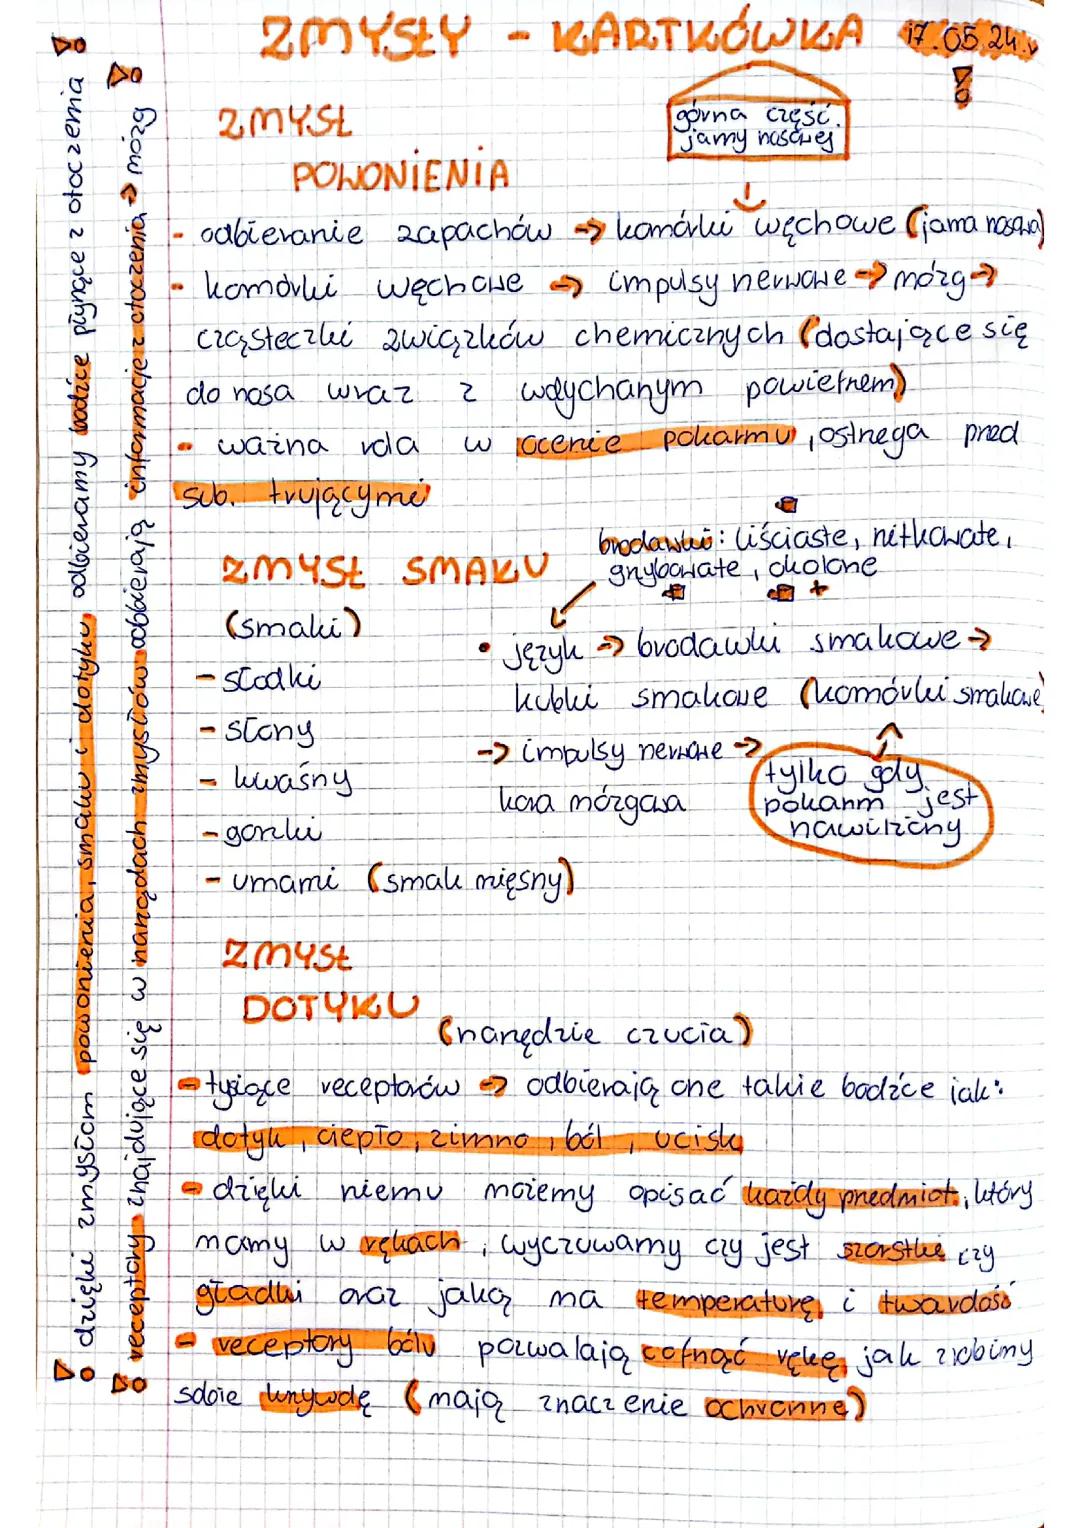 ZMYSŁY - KARTKÓWKA 17.05.24r.
górna część
jamy nosowej
ZMYSŁ
POWONIENIA
- odbieranie zapachów → komórki węchowe (jama nosowa)
- komórki węchowe → impulsy nerwowe → mózg →
cząsteczki związków chemicznych (dostające się
do nosa wraz z wdychanym powietrzem)
- ważna rola w ocenie pokarmu, ostrzega przed
sub. trującymi
ZMYSŁ SMAKU
brodawki: liściaste, nitkowate,
grzybowate, okolone
+
(smaki)
- słodki
- słony
- kwaśny
- gorzki
- umami (smak mięsny)
• język → brodawki smakowe →
kubki smakowe (komórki smakowe)
→ impulsy nerwowe →
kora mózgowa
tylko gdy
pokarm jest
nawilżony
ZMYSŁ
DOTYKU
(narzędzie czucia)
- tysiące receptorów → odbierają one takie bodźce jak:
dotyk, ciepło, zimno, ból, ucisk
- dzięki niemu możemy opisać każdy przedmiot, który
mamy w rękach, wyczuwamy czy jest szorstki czy
gładki oraz jaką ma temperaturę i twardość
- receptory bólu pozwalają cofnąć rękę, jak zrobimy
sobie krzywdę (mają znaczenie ochronne)
dzięki zmysłom powonienia, smaku i dotyku, odbieramy bodźce płynące z otoczenia
receptory znajdujące się w narządach zmysłów odbierają informacje z otoczenia → mózg